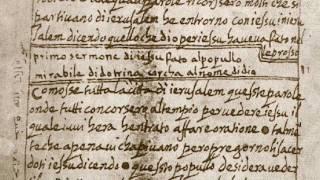 partivano di ierusalem he entrorno con iesu in ieru
salem dicendo quello che dio per iesu haveva fato nel
leproso
primo sermone di iesu fato al populo
mirabile di dotrina circha al nome di dio
Comose tutta la cita di ierusalem a queste parole
onde tutti concorsero al tempio per vedere iesu il
quale iui hera hentrato affare oratione
te che apena ui chapiuano pero pregorno li sacer
doti iesu dicendo questo populo desidera veder